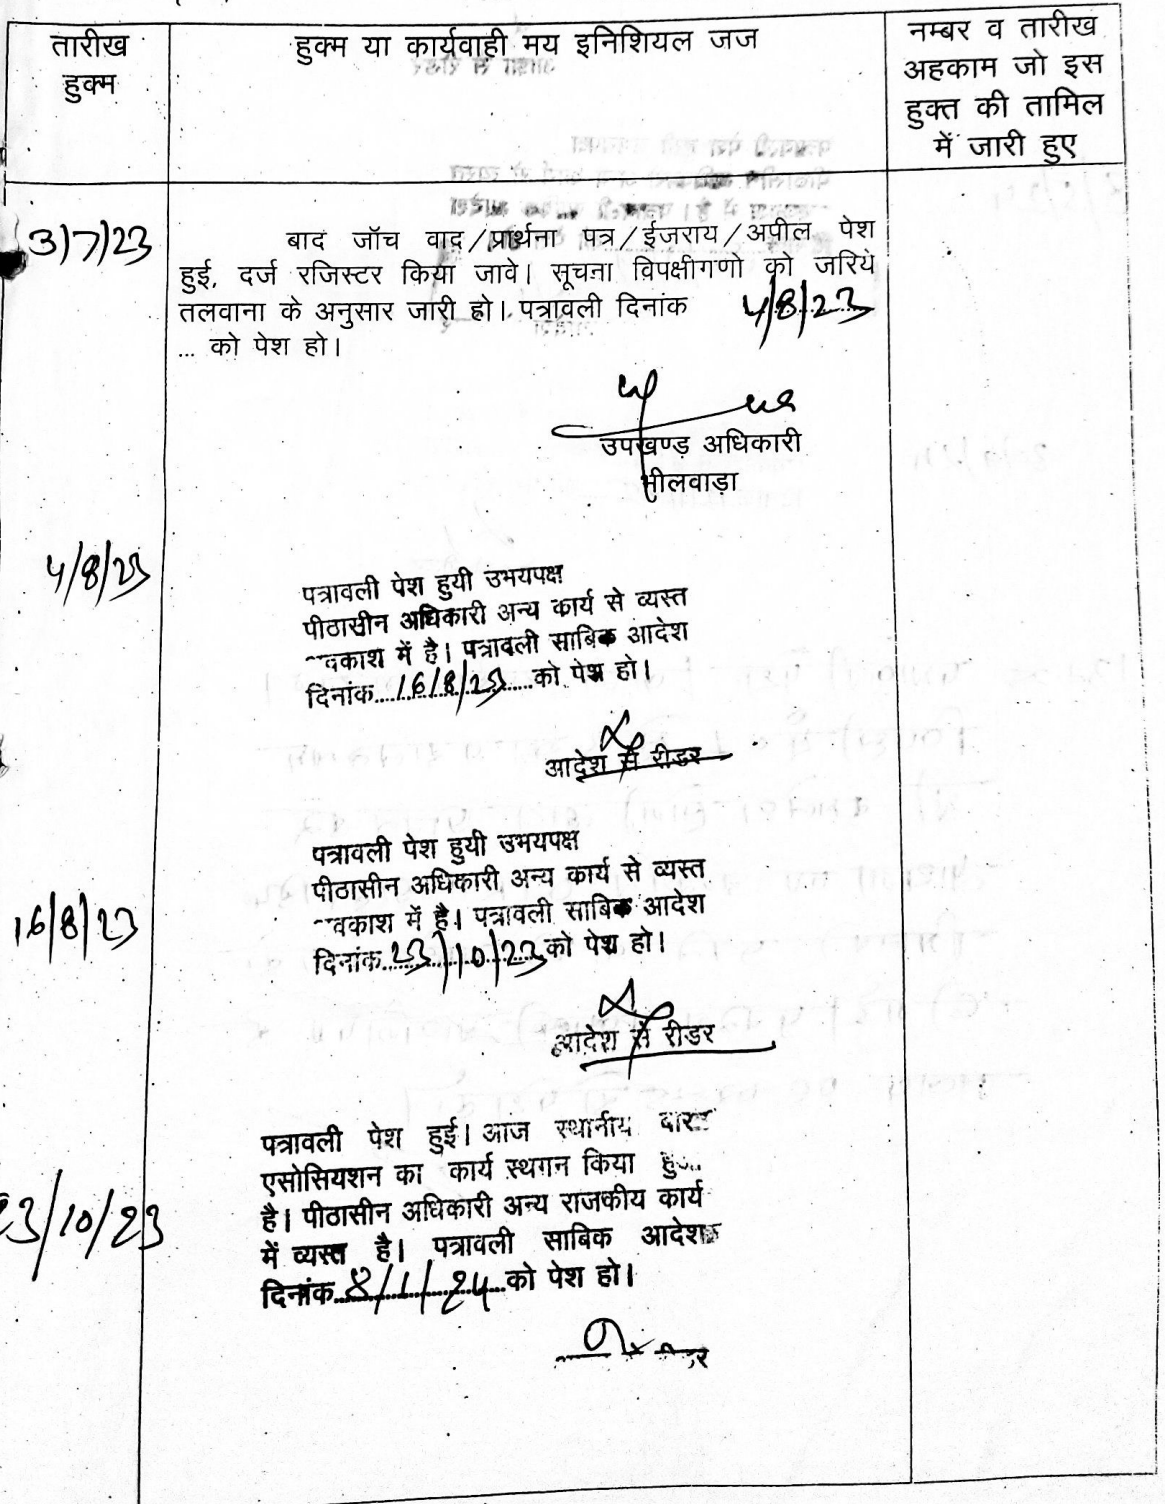 तारीख
हुक्म
हुक्म या कार्यवाही मय इनिशियल जज
नम्बर व तारीख
अहकाम जो इस
हुक्त की तामिल
में जारी हुए
3/7/23
बाद जॉच वाद/प्रार्थना पत्र/ईजराय/अपील पेश
हुई, दर्ज रजिस्टर किया जावे। सूचना विपक्षीगणो को जरिये
तलवाना के अनुसार जारी हो। पत्रावली दिनांक 4/8/23
... को पेश हो।
उपखण्ड अधिकारी
भीलवाड़ा
4/8/23
पत्रावली पेश हुयी उभयपक्ष
पीठासीन अधिकारी अन्य कार्य से व्यस्त
वकाश में है। पत्रावली साबिक आदेश
दिनांक 16/8/23 को पेश हो।
आदेश से रीडर
16/8/23
पत्रावली पेश हुयी उभयपक्ष
पीठासीन अधिकारी अन्य कार्य से व्यस्त
वकाश में है। पत्रावली साबिक आदेश
दिनांक 23/10/23 को पेश हो।
आदेश से रीडर
23/10/23
पत्रावली पेश हुई। आज स्थानीय
एसोसियशन का कार्य स्थगन किया
है। पीठासीन अधिकारी अन्य राजकीय कार्य
में व्यस्त है। पत्रावली साबिक आदेश
दिनांक 8/1/24 को पेश हो।